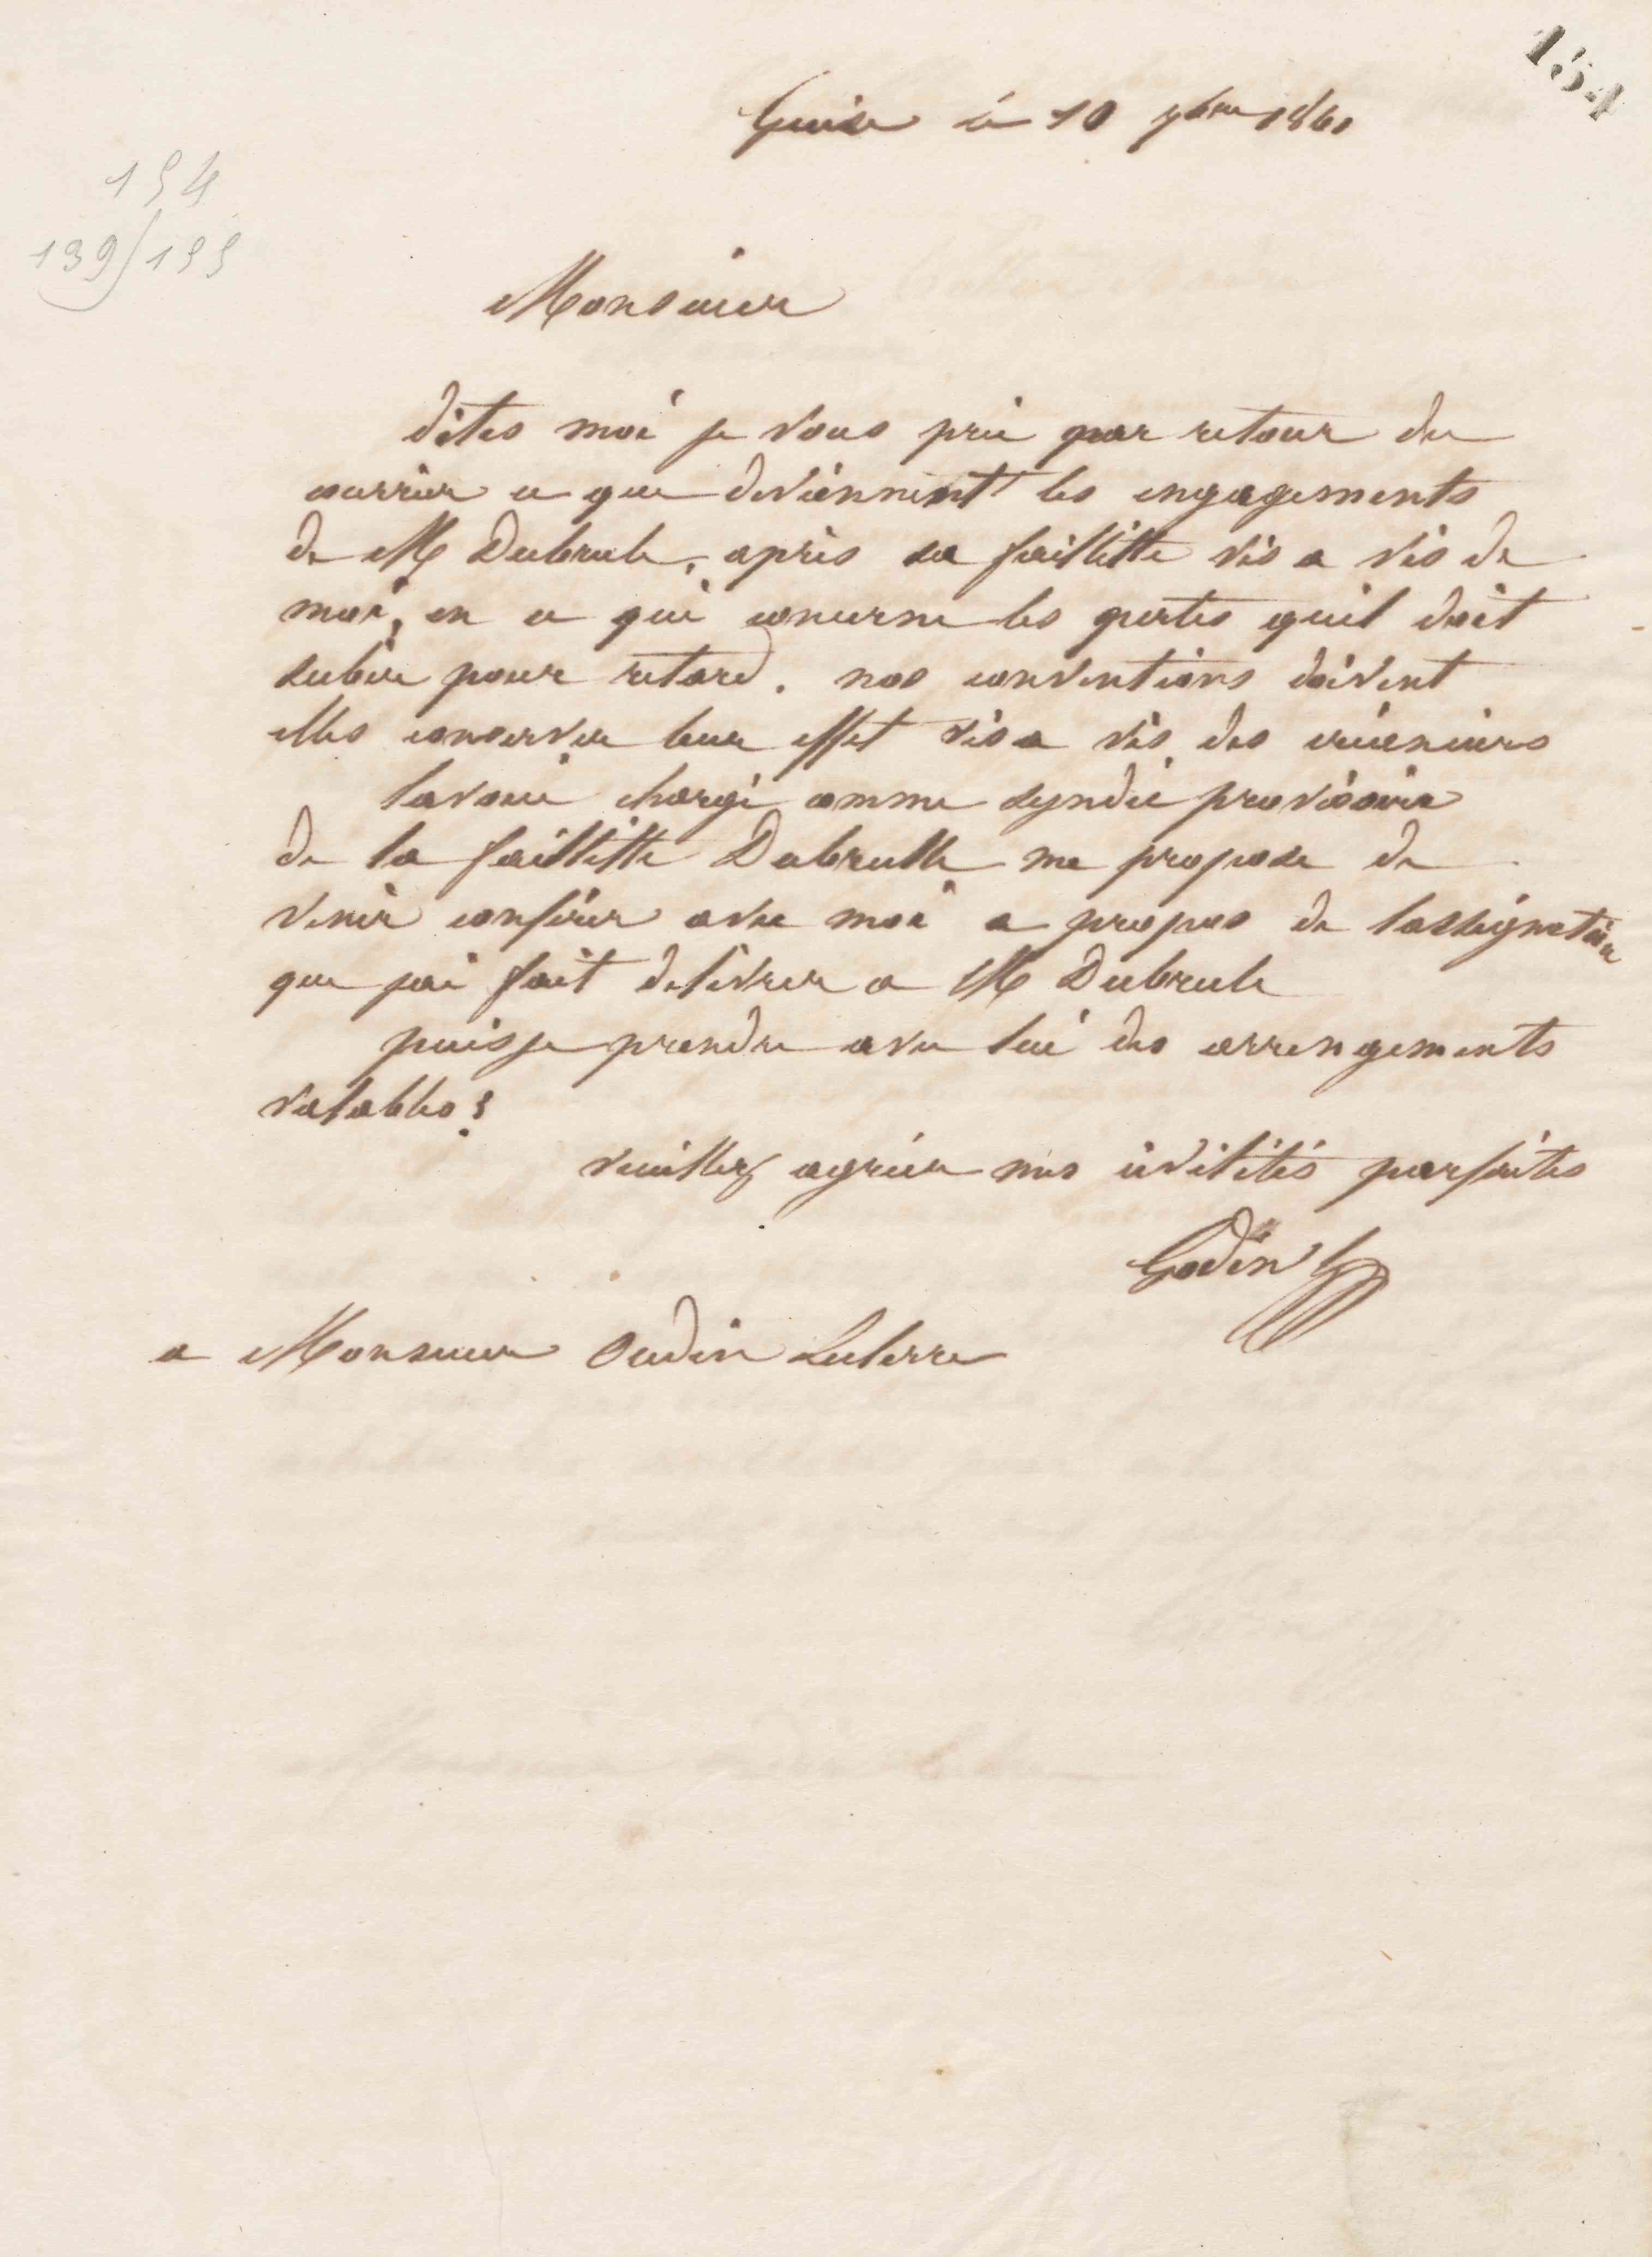 154
Guise le 10 9bre 1860
154
139/155
Monsieur
dites moi je vous prie par retour du
courrier ce que deviennent les engagements
de M Dubrule, après sa faillitte vis a vis de
moi, en ce qui concerne les pertes quil doit
subir pour retard. nos conventions doivent
elles conserver leur effet vis a vis des créanciers
lavoué chargé comme syndic provisoire
de la faillitte Dubrulle me propose de
venir conférer avec moi a propos de lassignation
que jai fait delivrer a M Dubrule
puis je prendre avec lui des arrengements
valables?
veuillez agréer mes civilités parfaites
Godin
a Monsieur Oudin Leclerre